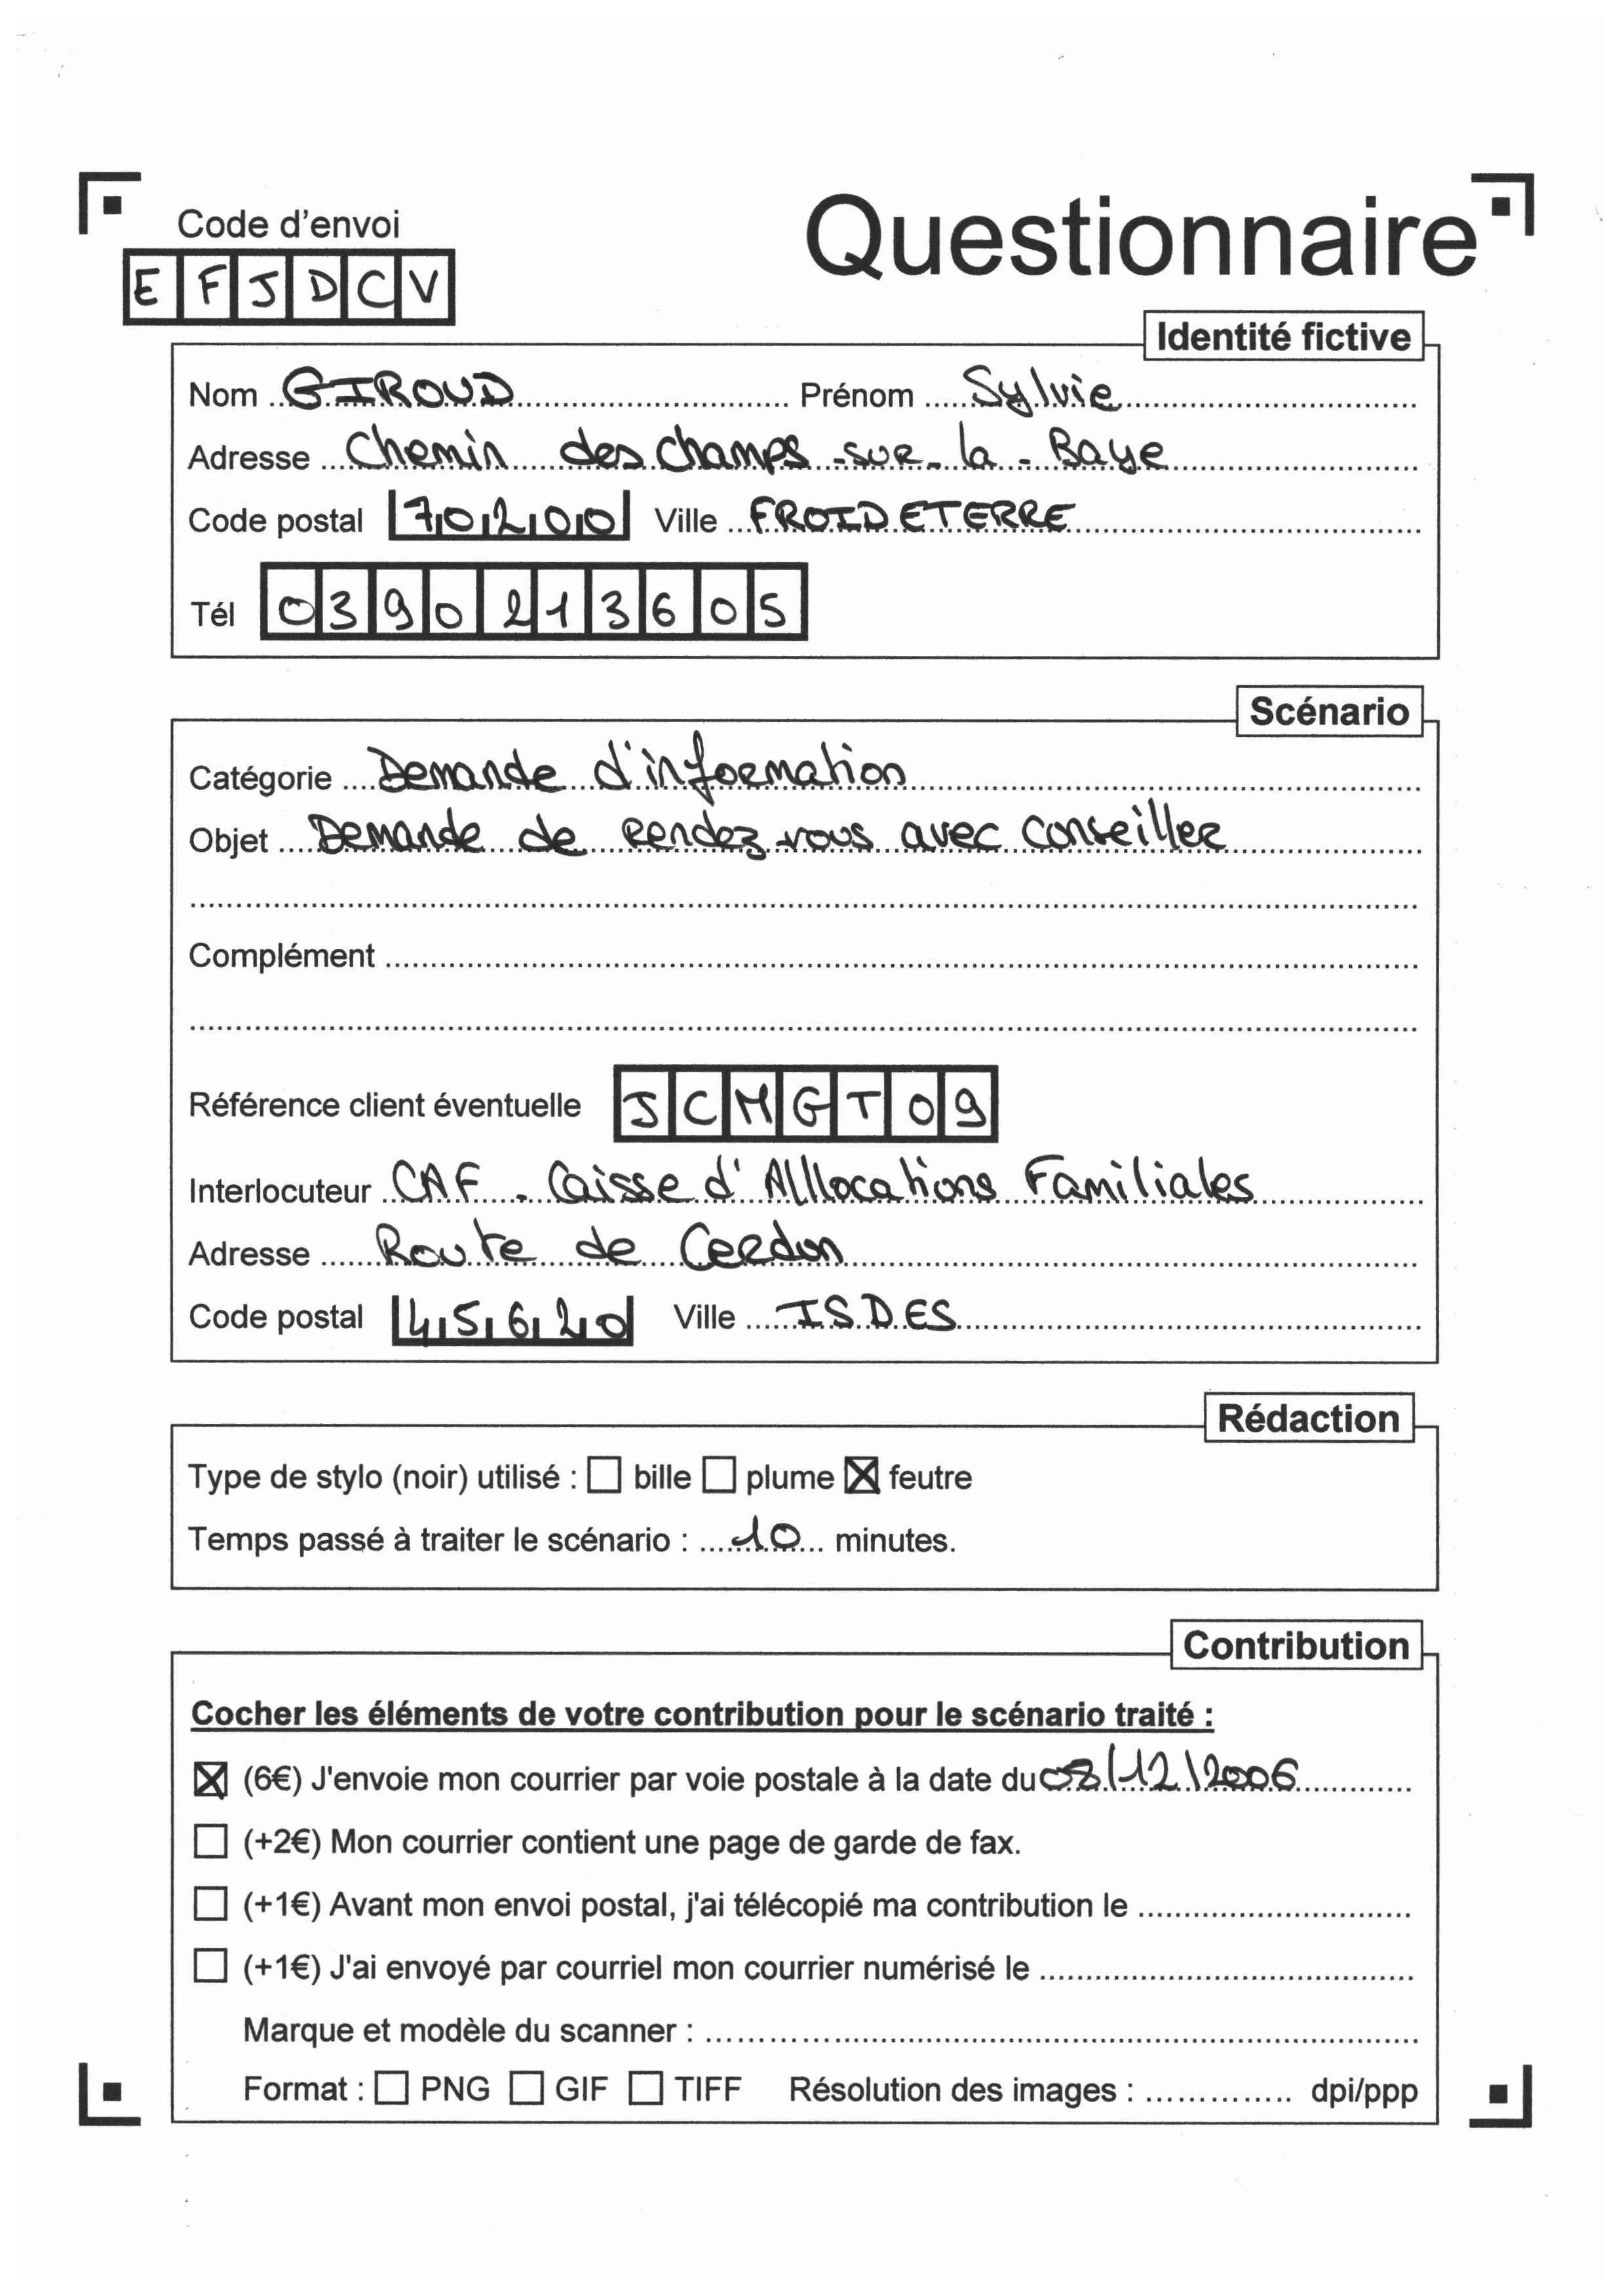 Code d'envoi
Questionnaire
EFJDCV
Identité fictive
Nom GIROUD Prénom Sylvie
Adresse Chemin des champs-sur-la-Baye
Code postal 70200 Ville FROIDETERRE
Tél 0390213605
Scénario
Catégorie Demande d'information
Objet Demande de rendez-vous avec conseiller
Complément
Référence client éventuelle JCMGT09
Interlocuteur CAF. Caisse d'Alllocations Familiales
Adresse Route de Cerdon
Code postal 45620 Ville ISDES
Rédaction
Type de stylo (noir) utilisé : ☐ bille ☐ plume ☒ feutre
Temps passé à traiter le scénario : 10 minutes.
Contribution
Cocher les éléments de votre contribution pour le scénario traité :
☒ (6€) J'envoie mon courrier par voie postale à la date du 08/12/2006
☐ (+2€) Mon courrier contient une page de garde de fax.
☐ (+1€) Avant mon envoi postal, j'ai télécopié ma contribution le
☐ (+1€) J'ai envoyé par courriel mon courrier numérisé le
Marque et modèle du scanner :
Format : ☐ PNG ☐ GIF ☐ TIFF Résolution des images : dpi/ppp